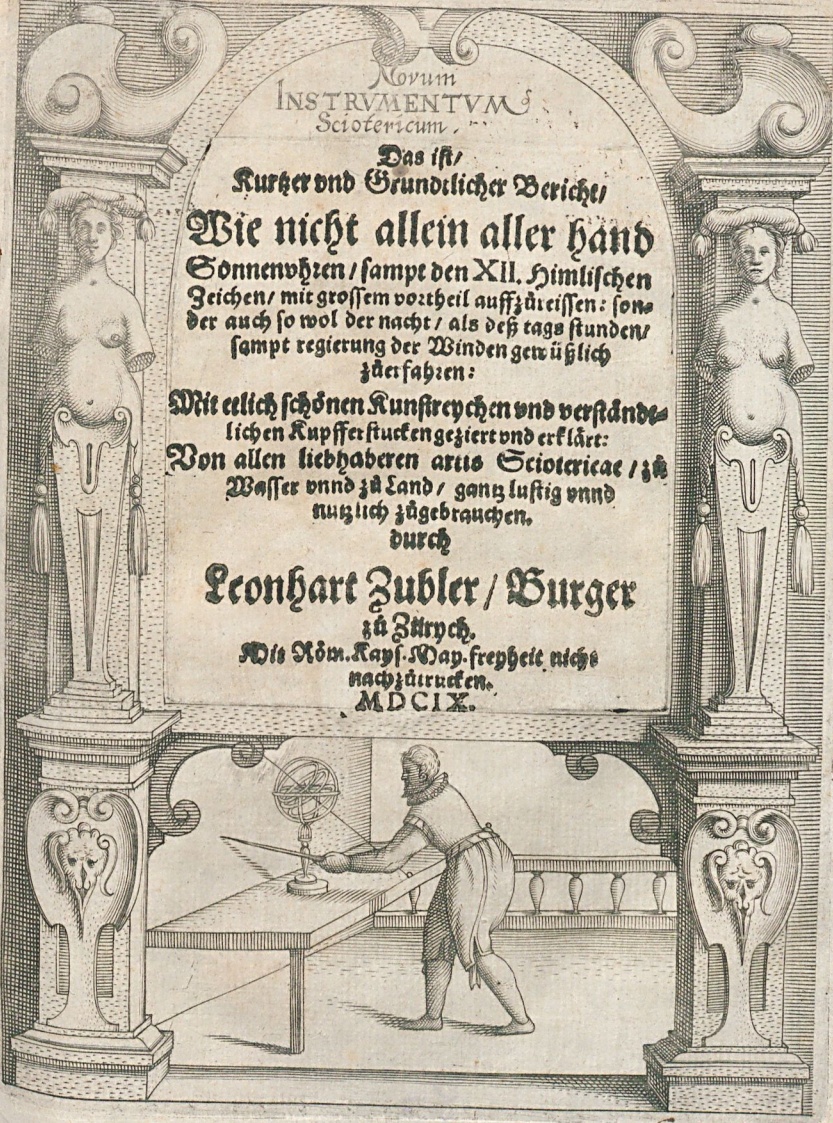 Novum
INSTRVMENTVM
Sciotericum.
Das ist/
Kurtzer vnd Grundtlicher Bericht/
Wie nicht allein aller hand
Sonnenvhren/ sampt den XII. Himlischen
Zeichen/ mit grossem vortheil auffzůreissen: son-
der auch so wol der nacht/ als deß tags stunden/
sampt regierung der Winden gewüßlich
zůerfahren:
Mit etlich schönen Kunstreychen vnd verständt-
lichen Kupfferstucken geziert vnd erklärt:
Von allen liebhaberen artis Sciotericae/ zů
Wasser vnnd zů Land/ gantz lustig vnnd
nutzlich zůgebrauchen.
durch
Leonhart Zubler/ Burger
zů Zürych.
Mit Röm. Kays. May. freyheit nicht
nachzůtrucken.
MDCIX.